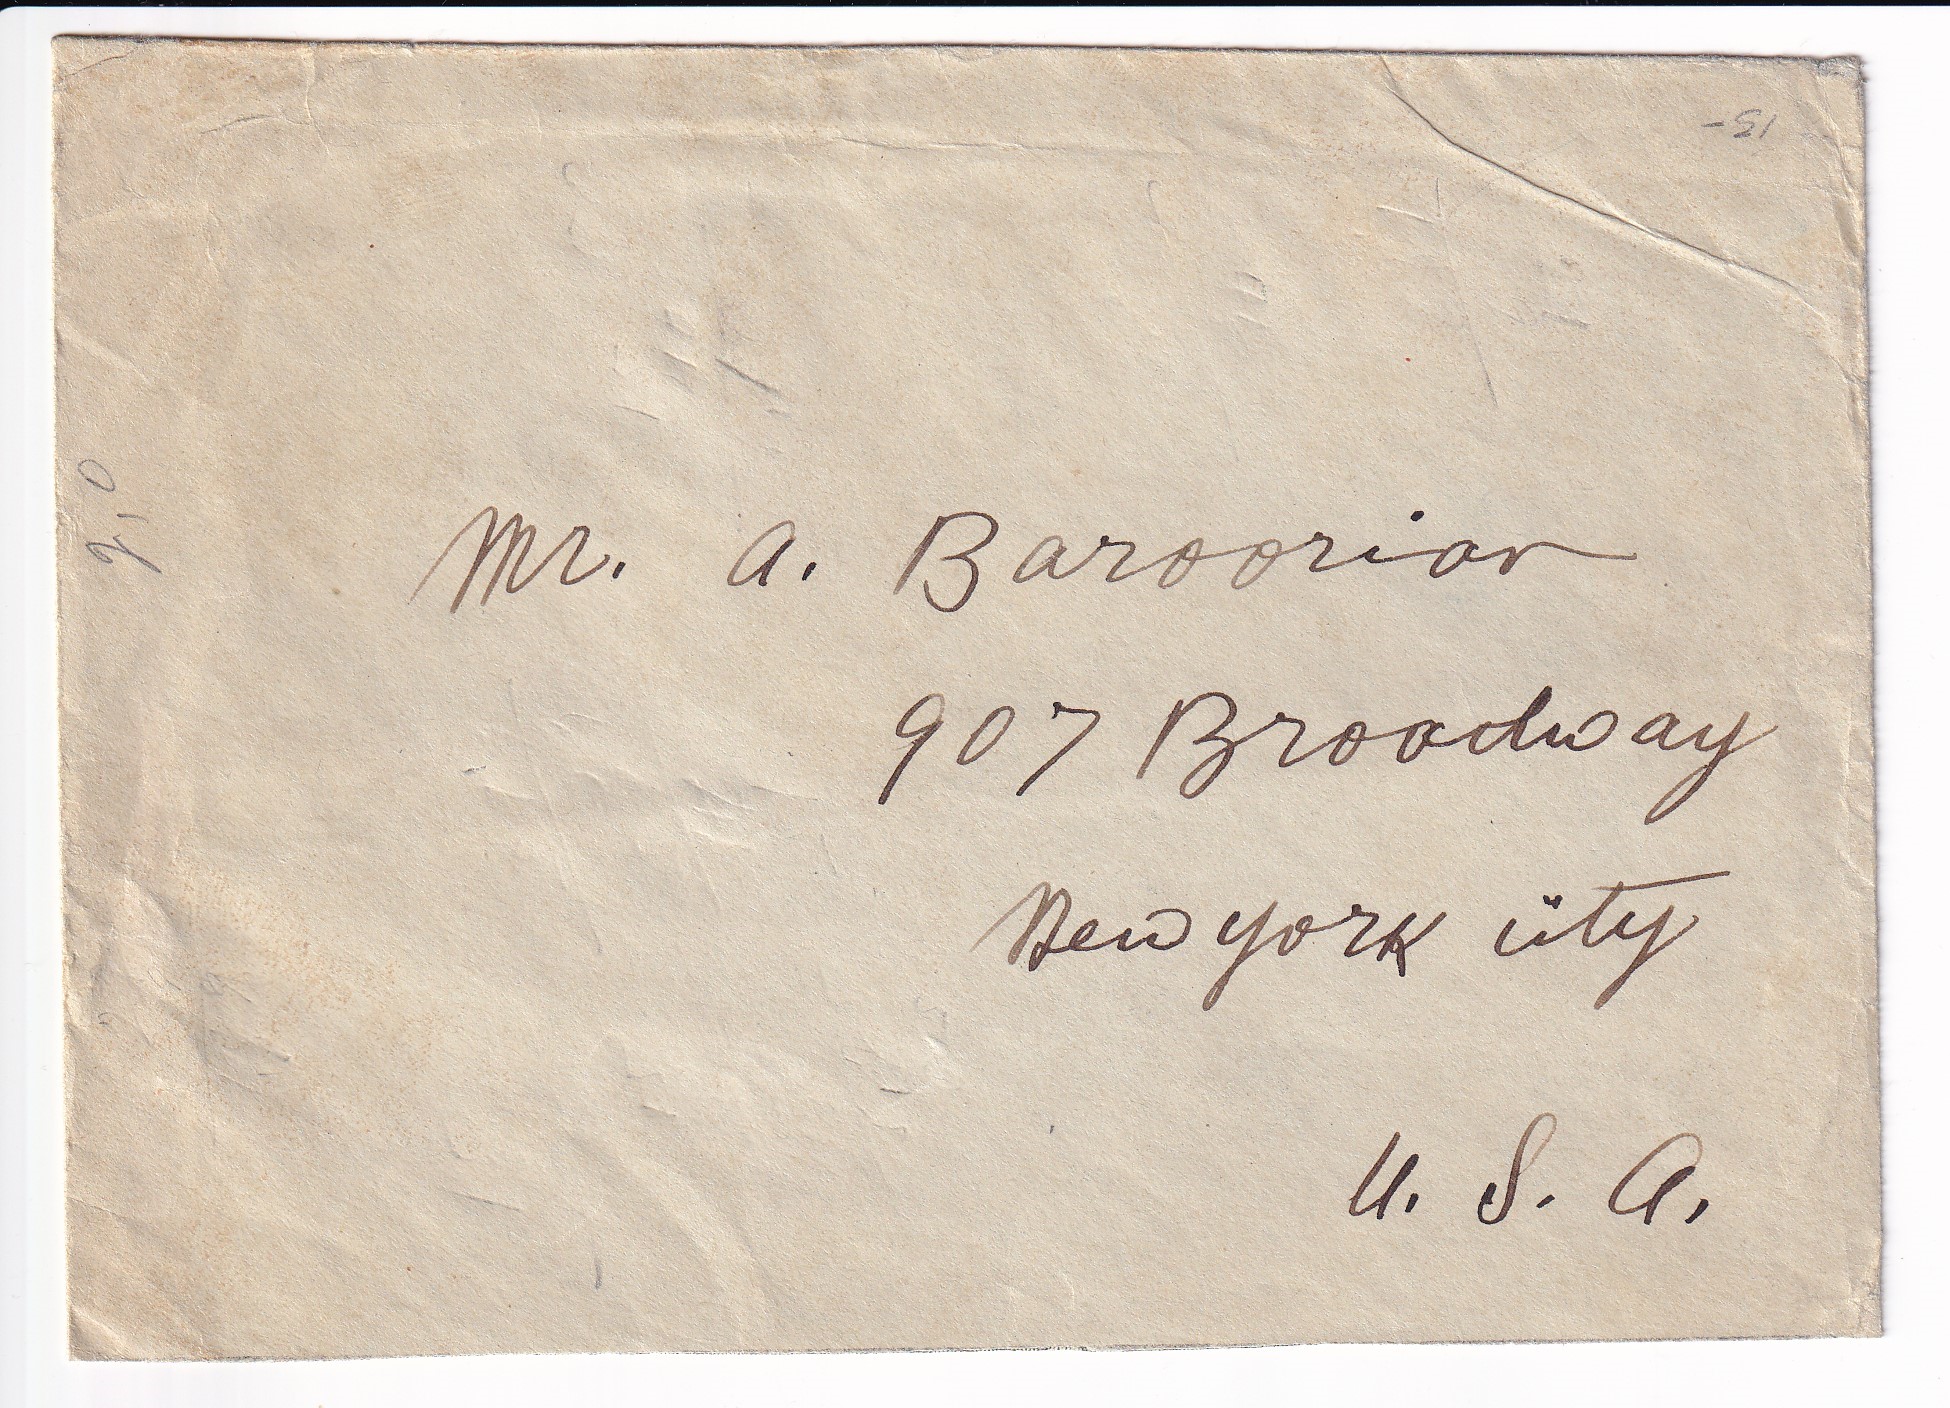 Mr. A. Baroorian
907 Broadway
New York City
U. S. A.